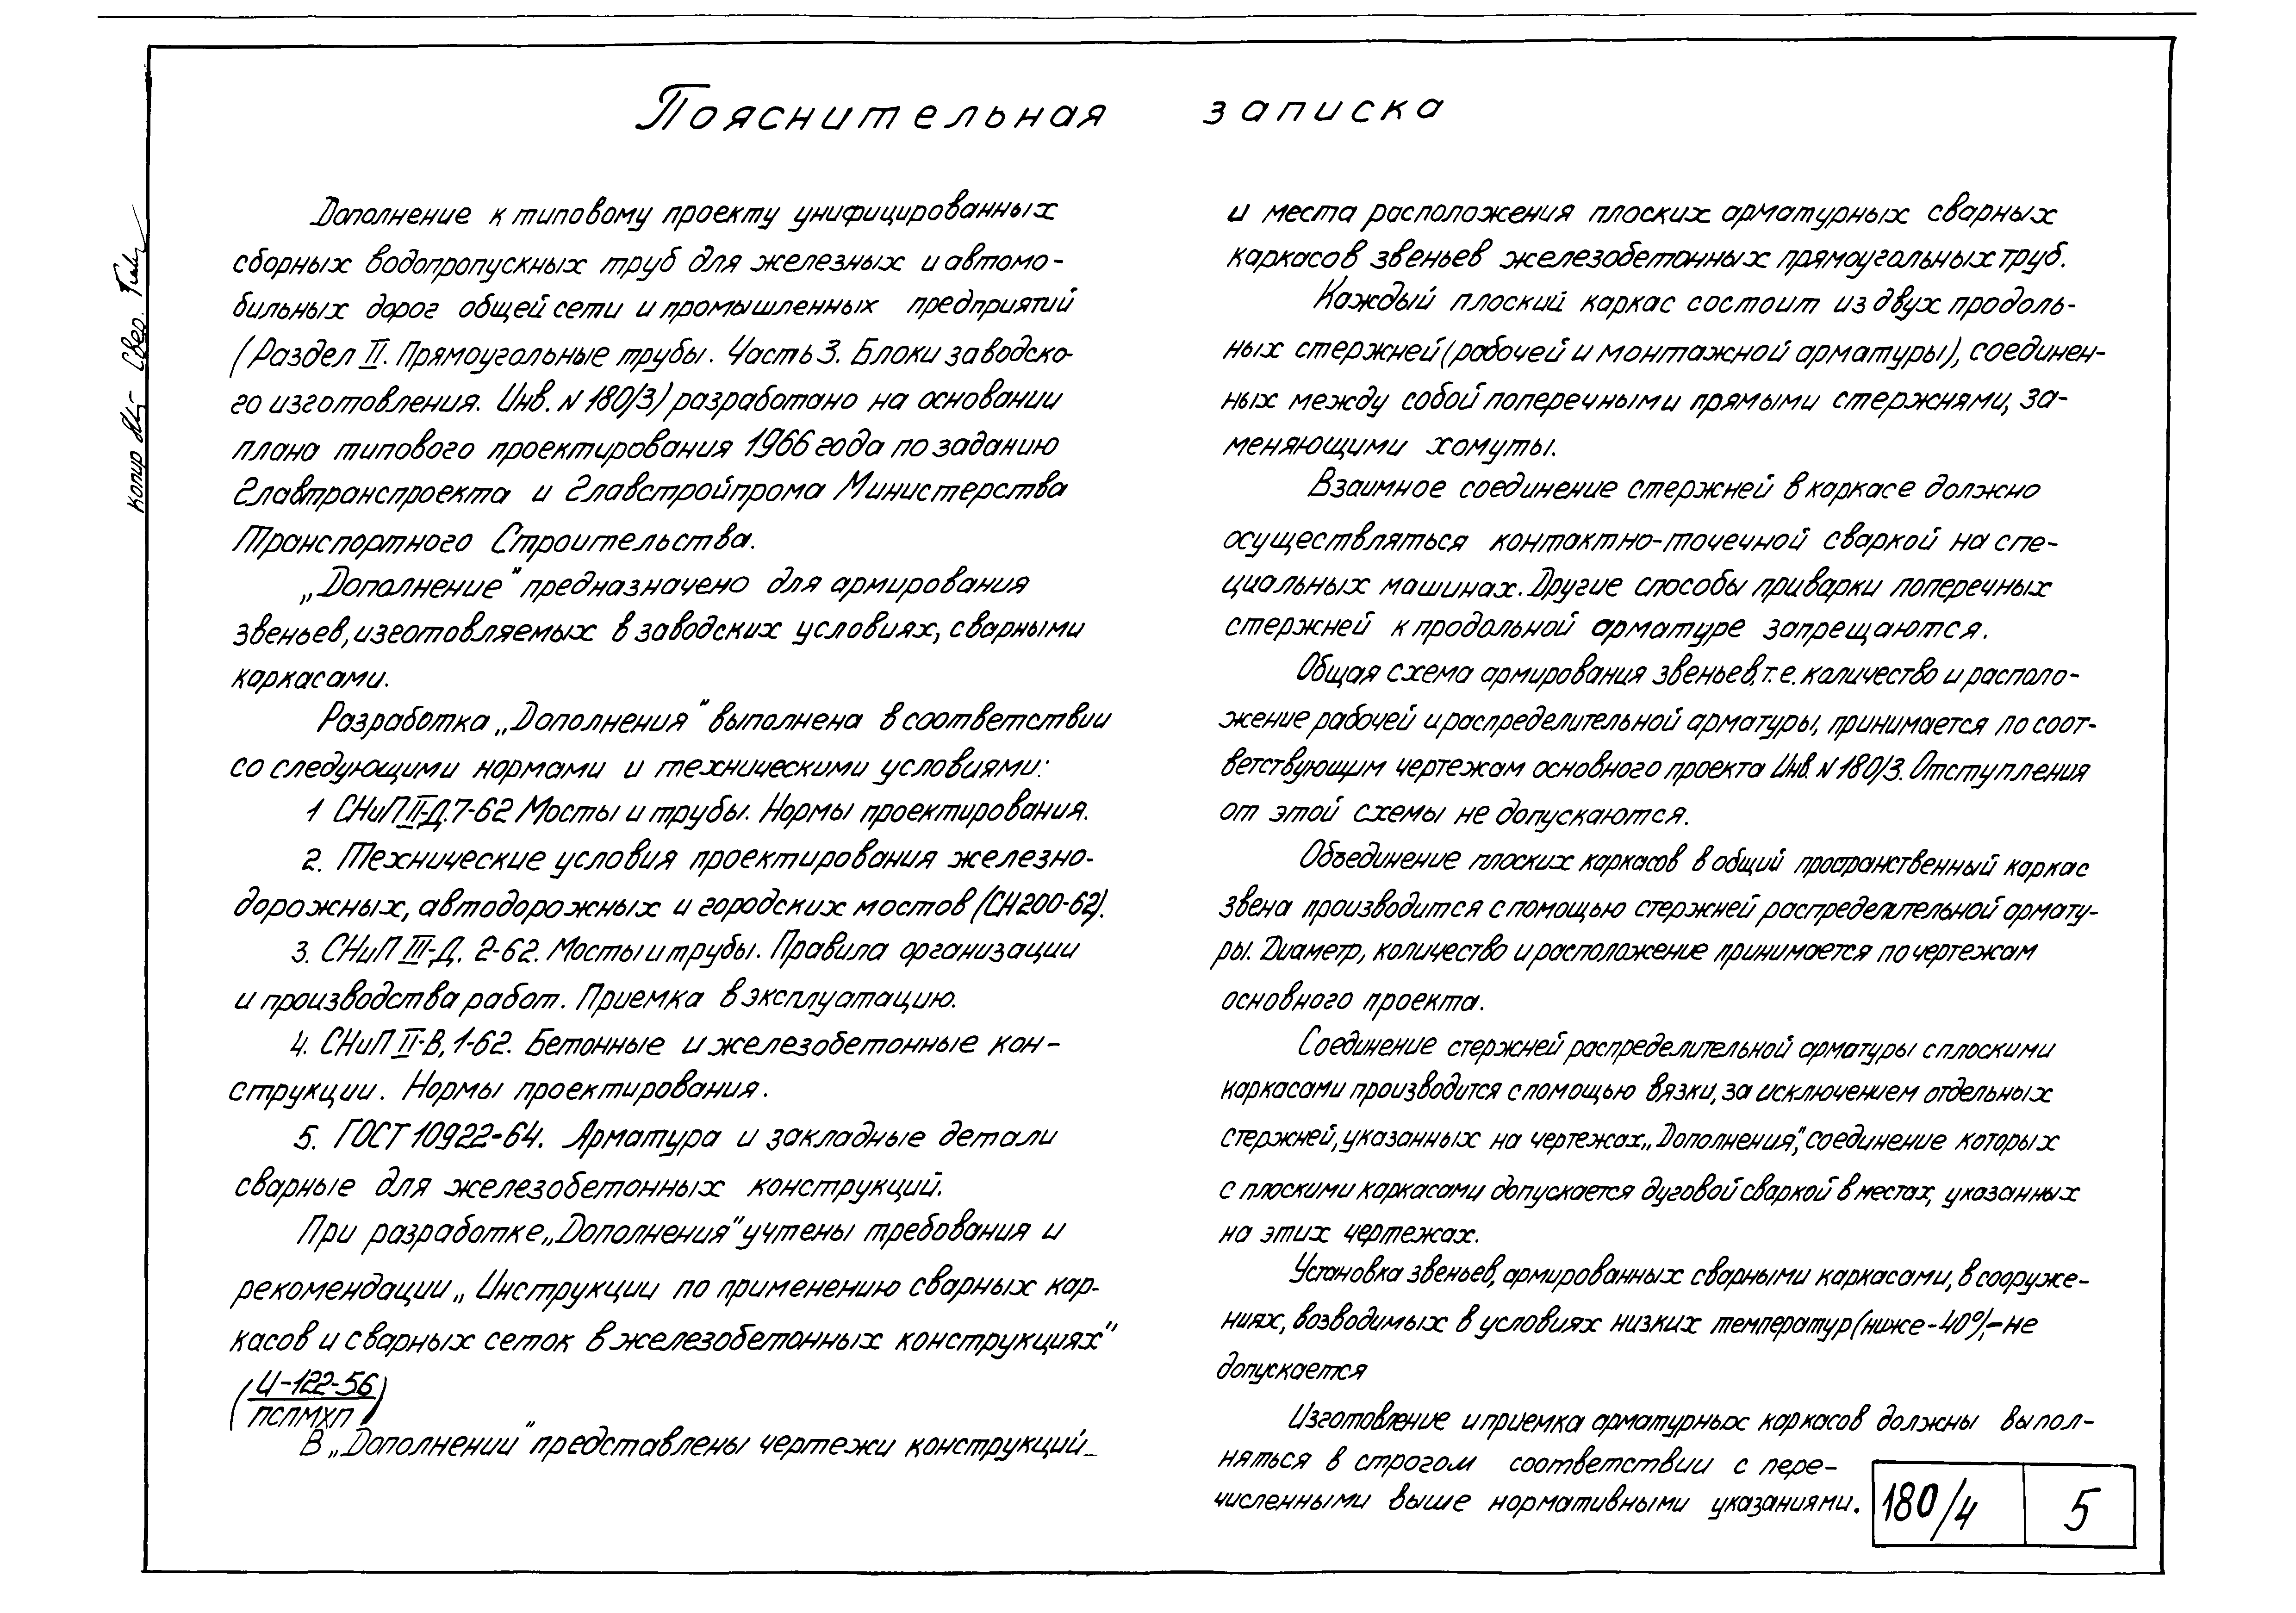 Пояснительная записка
Дополнение к типовому проекту унифицированных
сборных водопропускных труб для железных и автомо-
бильных дорог общей сети и промышленных предприятий
(Раздел II. Прямоугольные трубы. Часть 3. Блоки заводско-
го изготовления. Инв. N 180/3) разработано на основании
плана типового проектирования 1966 года по заданию
Главтранспроекта и Главстройпрома Министерства
Транспортного Строительства.
„Дополнение" предназначено для армирования
звеньев, изготовляемых в заводских условиях, сварными
каркасами.
Разработка „Дополнения" выполнена в соответствии
со следующими нормами и техническими условиями:
1 СНиП II-Д.7-62 Мосты и трубы. Нормы проектирования.
2. Технические условия проектирования железно-
дорожных, автодорожных и городских мостов (СН 200-62).
3. СНиП III-Д. 2-62. Мосты и трубы. Правила организации
и производства работ. Приемка в эксплуатацию.
4. СНиП II-В, 1-62. Бетонные и железобетонные кон-
струкции. Нормы проектирования.
5. ГОСТ 10922-64. Арматура и закладные детали
сварные для железобетонных конструкций.
При разработке „Дополнения" учтены требования и
рекомендации „Инструкции по применению сварных кар-
касов и сварных сеток в железобетонных конструкциях"
(И-122-56
ПСПМХП)
В „Дополнении" представлены чертежи конструкций
и места расположения плоских арматурных сварных
каркасов звеньев железобетонных прямоугольных труб.
Каждый плоский каркас состоит из двух продоль-
ных стержней (рабочей и монтажной арматуры), соединен-
ных между собой поперечными прямыми стержнями, за-
меняющими хомуты.
Взаимное соединение стержней в каркасе должно
осуществляться контактно-точечной сваркой на спе-
циальных машинах. Другие способы приварки поперечных
стержней к продольной арматуре запрещаются.
Общая схема армирования звеньев, т.е. количество и располо-
жение рабочей и распределительной арматуры, принимается по соот-
ветствующим чертежам основного проекта Инв. N 180/3. Отступления
от этой схемы не допускаются.
Объединение плоских каркасов в общий пространственный каркас
звена производится с помощью стержней распределительной армату-
ры. Диаметр, количество и расположение принимается по чертежам
основного проекта.
Соединение стержней распределительной арматуры с плоскими
каркасами производится с помощью вязки, за исключением отдельных
стержней, указанных на чертежах „Дополнения", соединение которых
с плоскими каркасами допускается дуговой сваркой в местах, указанных
на этих чертежах.
Установка звеньев, армированных сварными каркасами, в сооруже-
ниях, возводимых в условиях низких температур (ниже -40°), - не
допускается
Изготовление и приемка арматурных каркасов должны выпол-
няться в строгом соответствии с пере-
численными выше нормативными указаниями.
180/4 5
копир Свер.